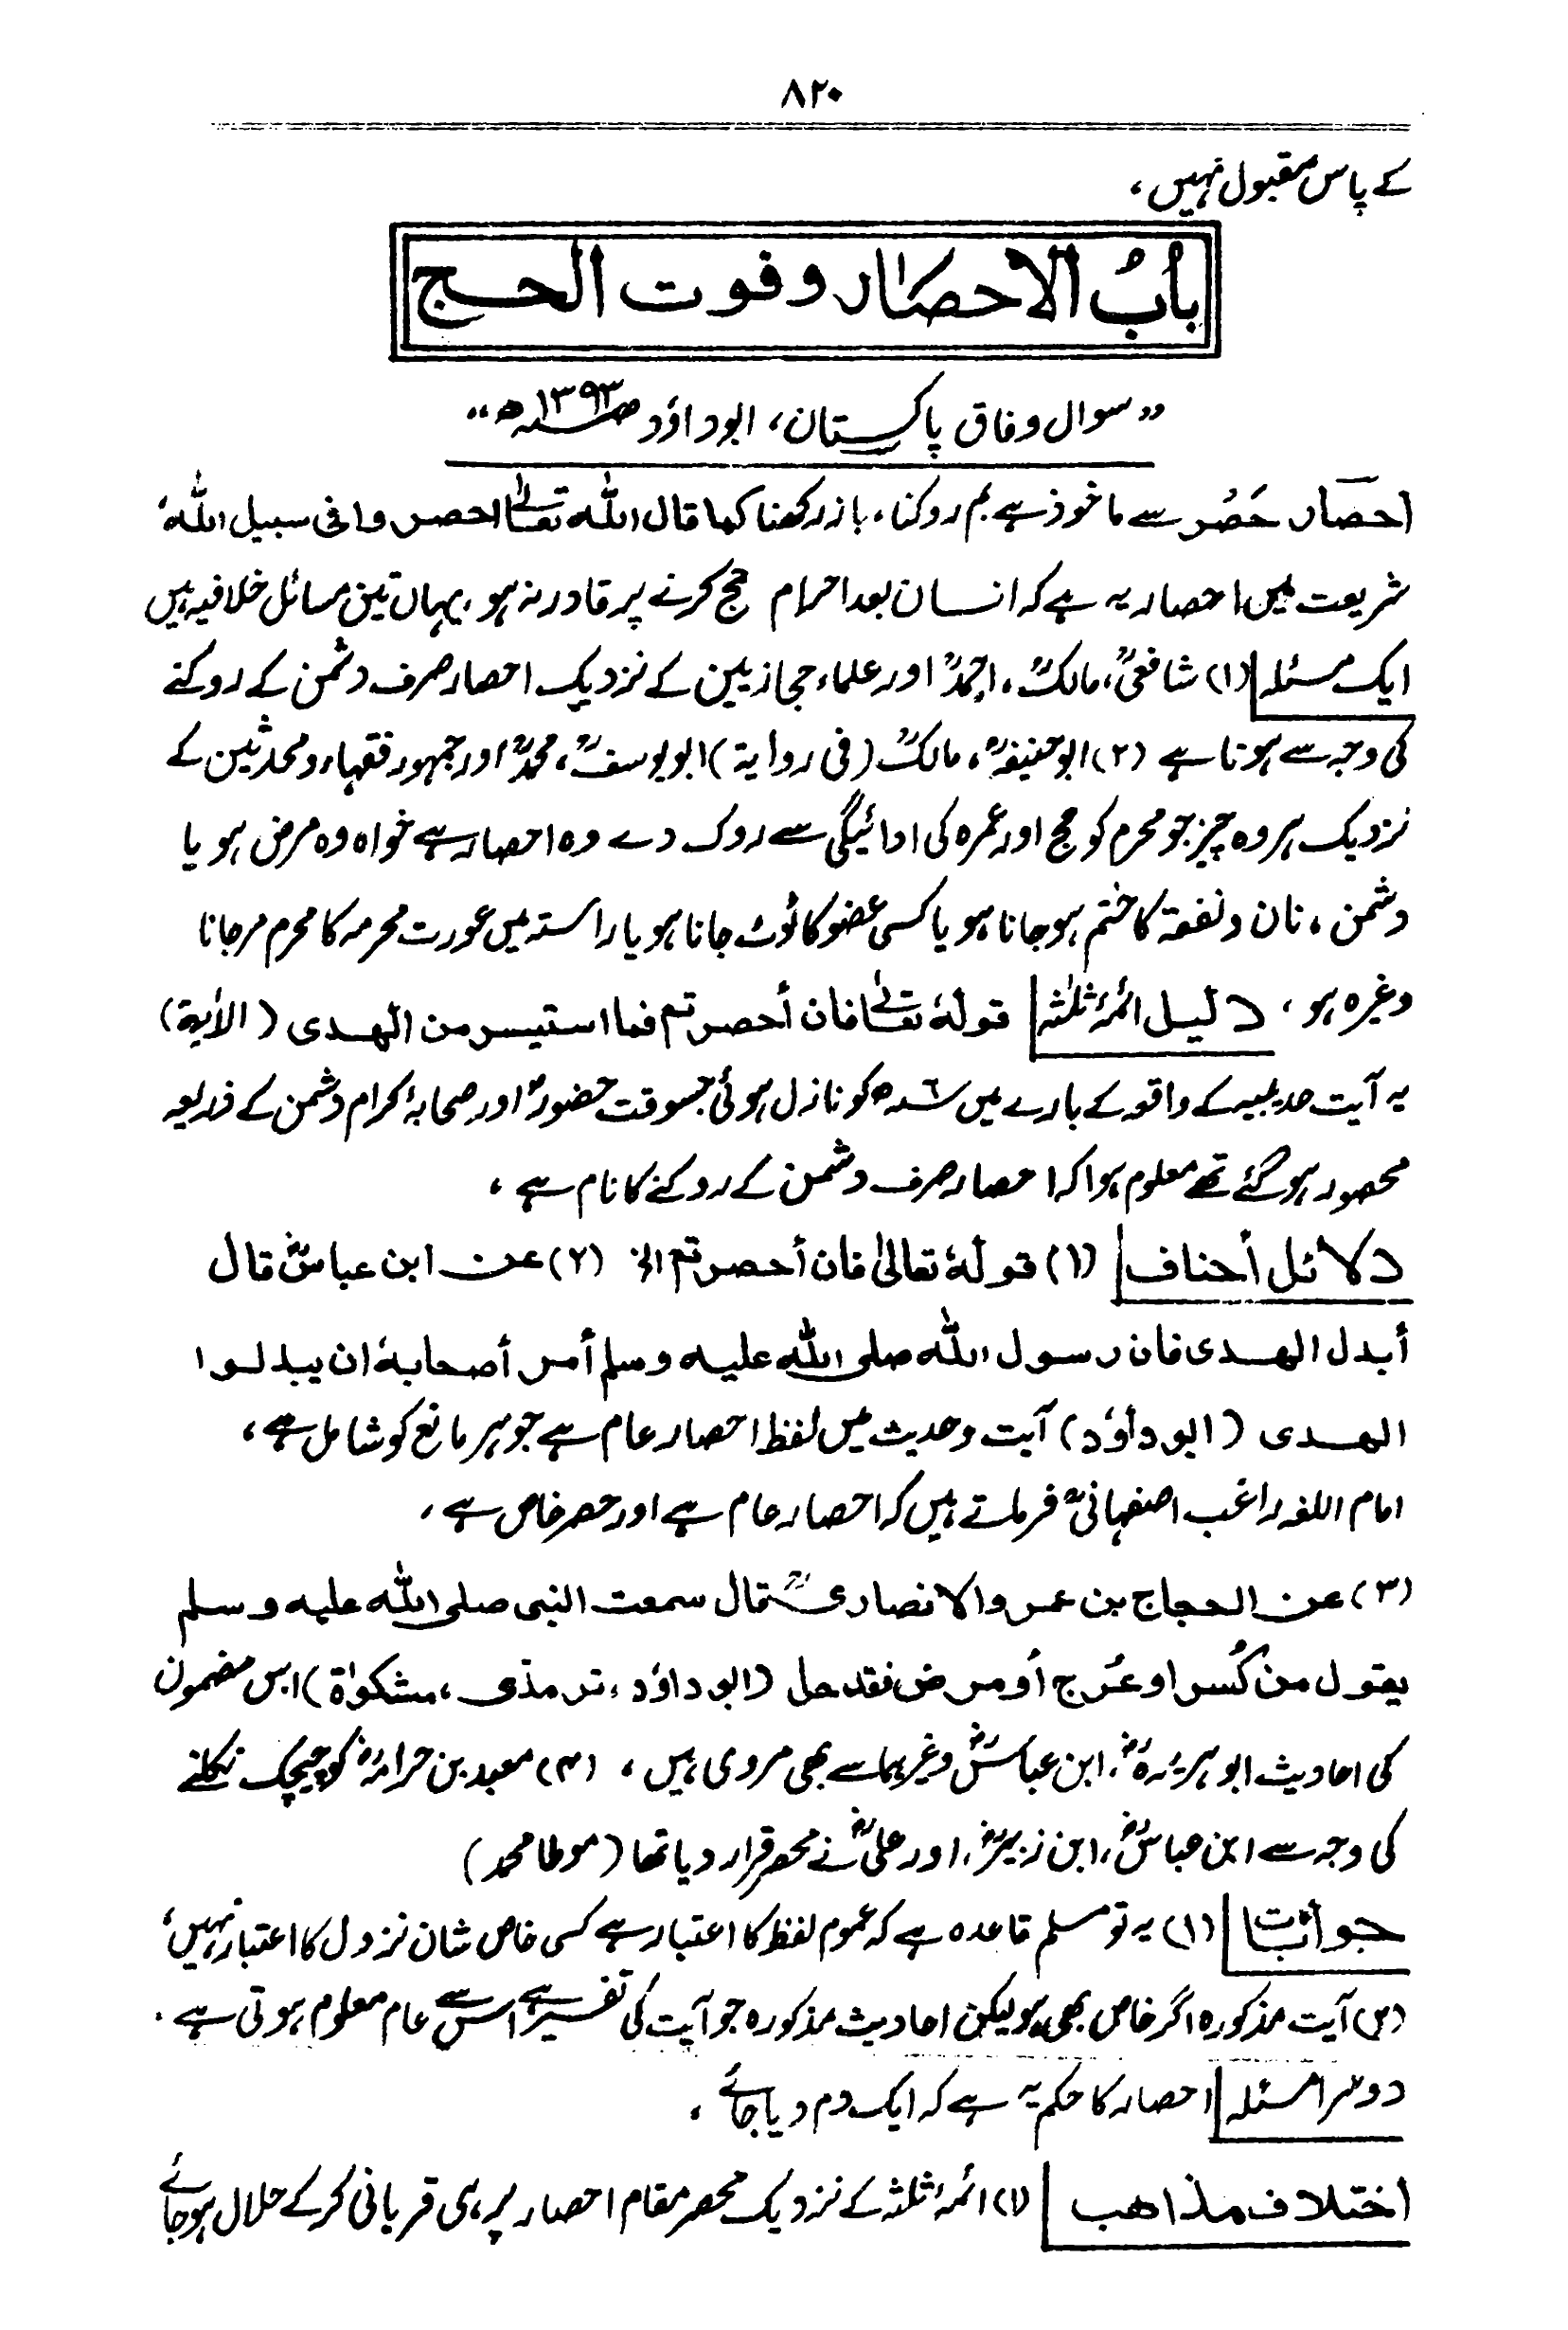 ۸۲۰
کے پاس مقبول نہیں،
بابُ الاحصار وفوت الحج
”سوال وفاق پاکستان، ابوداؤد ۱۳۹۳ھ“
احصار حَصْر سے ماخوذ ہے بم روکنا، باز رکھنا کما قال اللہ تعالیٰ احصروا فی سبیل اللہ،
شریعت میں احصار یہ ہے کہ انسان بعد احرام حج کرنے پر قادر نہ ہو، یہاں تین مسائل خلافیہ ہیں
ایک مسئلہ (۱) شافعیؒ، مالکؒ، احمدؒ اور علماء حجازیین کے نزدیک احصار صرف دشمن کے روکنے
کی وجہ سے ہوتا ہے (۲) ابوحنیفہؒ، مالکؒ (فی روایة) ابویوسفؒ، محمدؒ اور جمہور فقہاء ومحدثین کے
نزدیک ہر وہ چیز جو محرم کو حج اور عمرہ کی ادائیگی سے روک دے وہ احصار ہے خواہ وہ مرض ہو یا
دشمن، نان ونفقۃ کا ختم ہوجانا ہو یا کسی عضو کا ٹوٹ جانا ہو یا راستہ میں عورت محرمہ کا محرم مرجانا
وغیرہ ہو، دلیل ائمۂ ثلٰثہ قولہٗ تعالیٰ فان أحصرتم فما استیسر من الهدی (الاٰیة)
یہ آیت حدیبیہ کے واقعہ کے بارے میں ۶ھ کو نازل ہوئی جسوقت حضورؐ اور صحابۂ کرام دشمن کے ذریعہ
محصور ہوگئے تھے معلوم ہوا کہ احصار صرف دشمن کے روکنے کا نام ہے،
دلائل أحناف (۱) قولہٗ تعالیٰ فان أحصرتم الخ (۲) عن ابن عباسؓ قال
أبدل الهدی فان رسول اللہ صلی اللہ علیہ وسلم أمر أصحابہٗ ان یبدلوا
الهدی (ابوداؤد) آیت وحدیث میں لفظ احصار عام ہے جو ہر مانع کو شامل ہے،
امام اللغہ راغب اصفہانیؒ فرماتے ہیں کہ احصار عام ہے اور حصر خاص ہے،
(۳) عن الحجاج بن عمرو الانصاریؓ قال سمعت النبی صلی اللہ علیہ وسلم
یقول من کُسر او عَرج أو مرض فقد حل (ابوداؤد، ترمذی، مشکوٰة) اس مضمون
کی احادیث ابوہریرہؓ، ابن عباسؓ وغیرہما سے بھی مروی ہیں، (۴) معبد بن حرامہؓ کو چیچک نکلنے
کی وجہ سے ابن عباسؓ، ابن زبیرؓ، اور علیؓ نے محصر قرار دیا تھا (موطا محمد)
جوابات (۱) یہ تو مسلم قاعدہ ہے کہ عموم لفظ کا اعتبار ہے کسی خاص شان نزول کا اعتبار نہیں،
(۲) آیت مذکورہ اگر خاص بھی ہو لیکن احادیث مذکورہ جو آیت کی تفسیر ہے اس سے عام معلوم ہوتی ہے۔
دوسرا مسئلہ احصار کا حکم یہ ہے کہ ایک دم دیا جائے،
اختلاف مذاهب (۱) ائمۂ ثلثہ کے نزدیک محصر مقام احصار پر ہی قربانی کرکے حلال ہوجائے